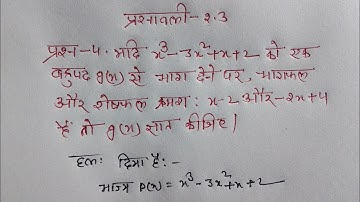 प्रश्नावली-2.3
प्रश्न-4. यदि x³-3x²+x+2 को एक
बहुपद g(x) से भाग देने पर, भागफल
और शेषफल क्रमश: x-2 और -2x+4
हैं तो g(x) ज्ञात कीजिए।
हल: दिया है:-
भाज्य P(x) = x³-3x²+x+2